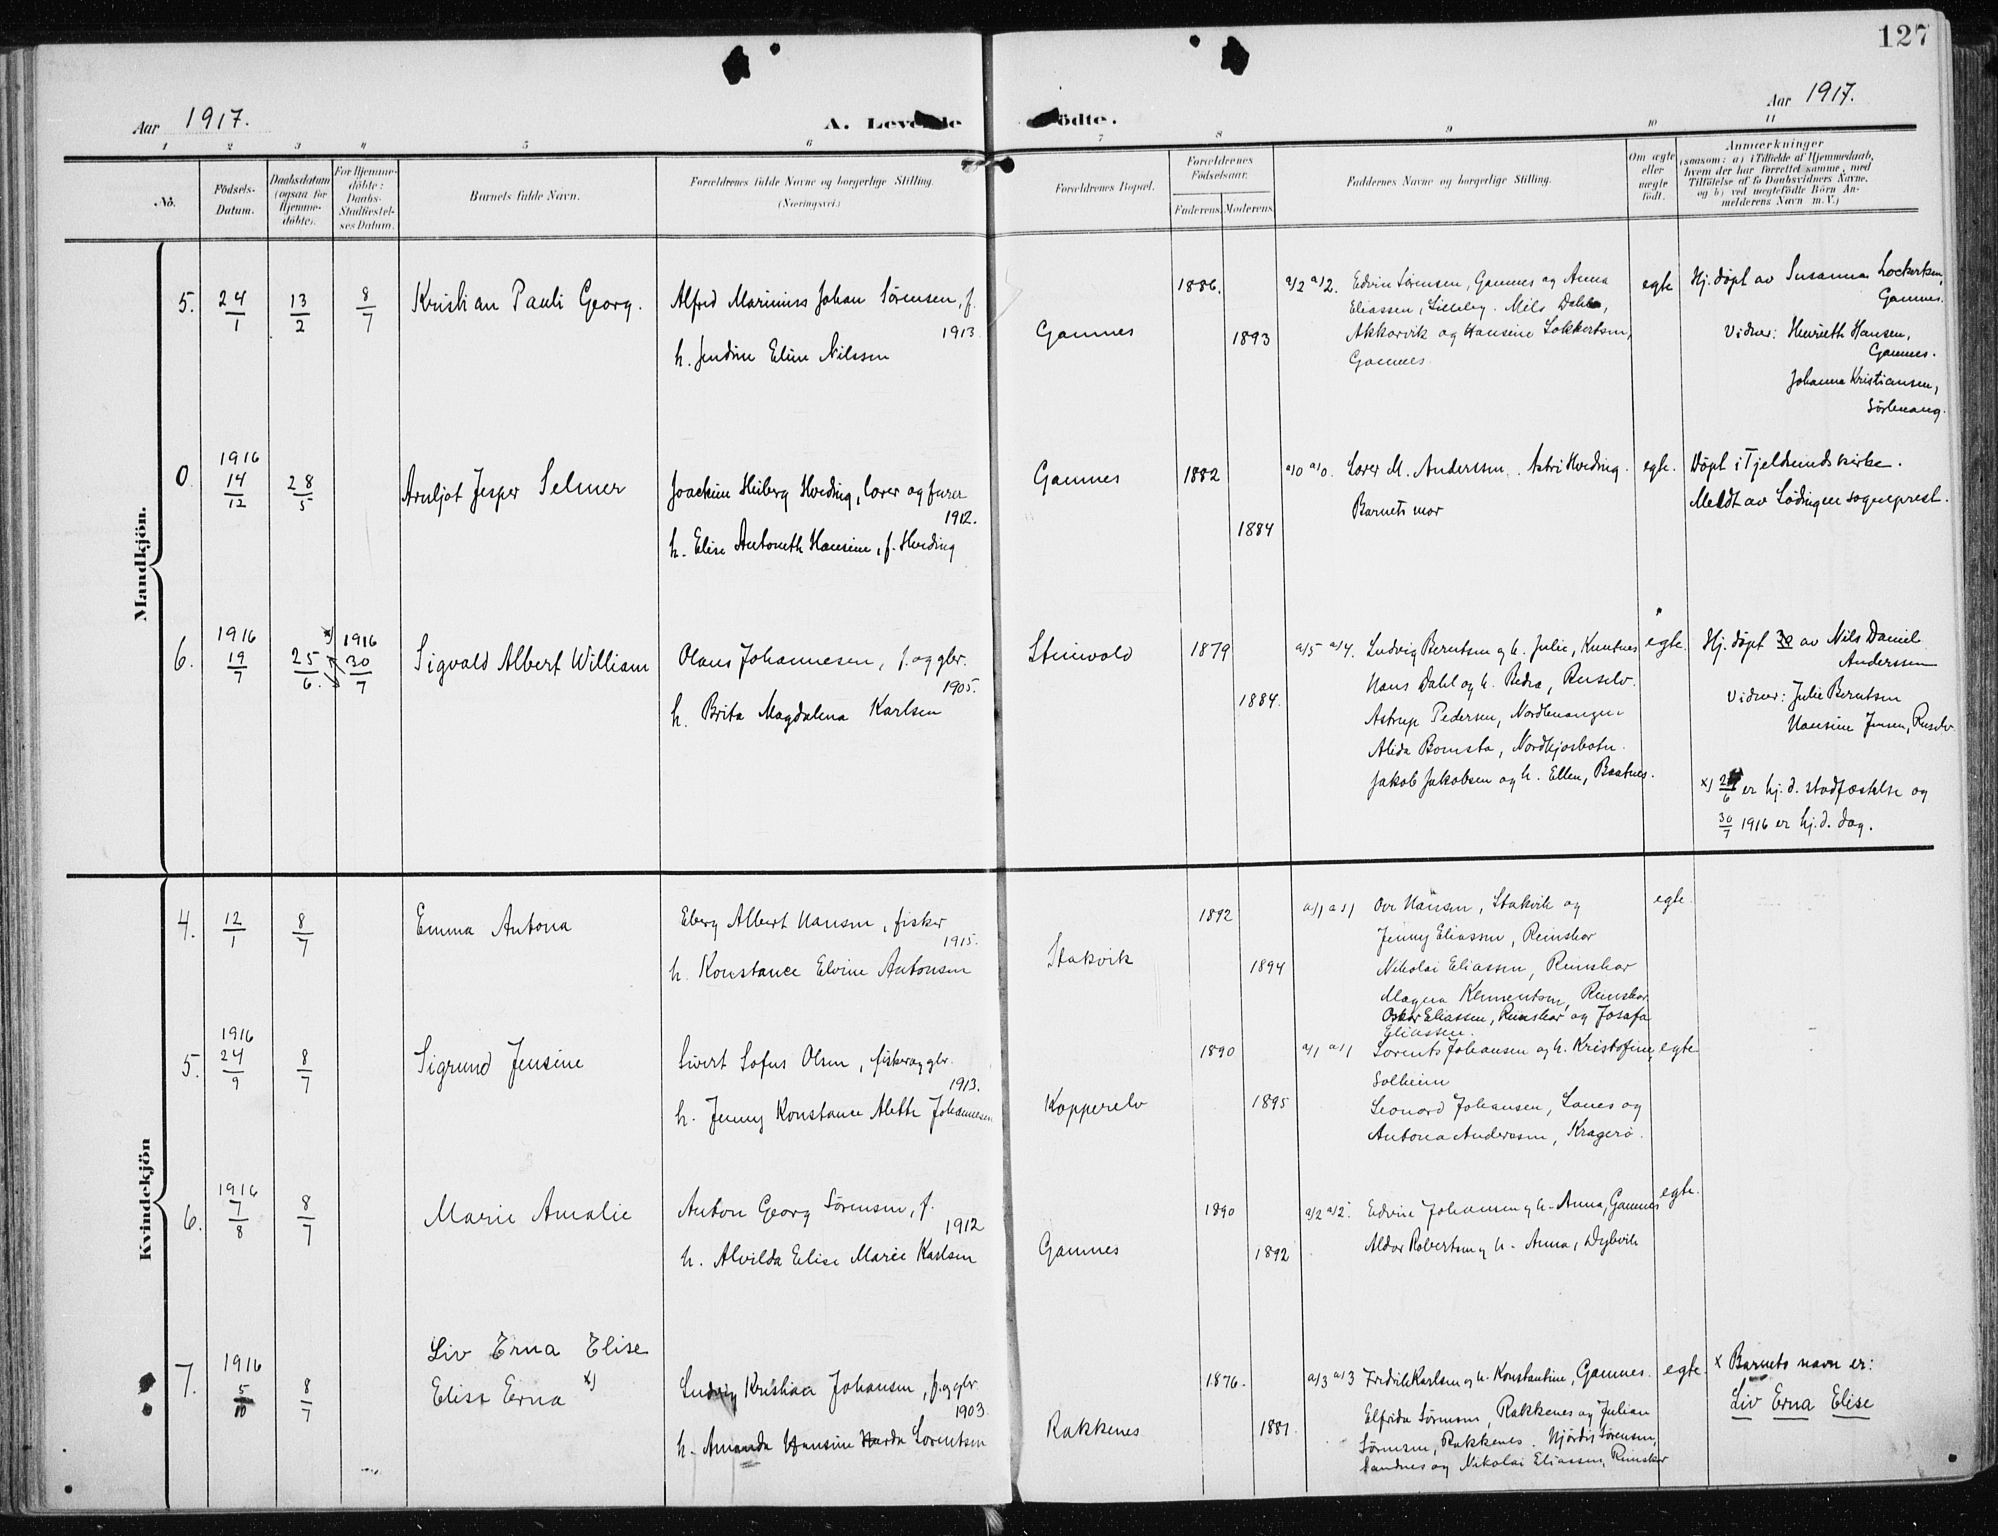 127
Aar 1917.
A. Levende Födte.
Aar 1917.
1 2 3 4 5 6 7 8 9 10 11
No.
Födsels-
Datum.
Daabsdatum
(ogsaa for
Hjemme-
döbte).
For Hjemme-
döbte:
Daabs-
Stadfæstel-
ses Datum.
Barnets fulde Navn.
Forældrenes fulde Navne og borgerlige Stilling.
(Næringsvei.)
Forældrenes Bopæl.
Forældrenes
Födselsaar.
Faderens. Moderens.
Faddernes Navne og borgerlige Stilling.
Om ægte
eller
uægte
födt.
Anmærkninger
(saasom: a) i Tilfælde af Hjemmedaab,
hvem der har forrettet samme, med
Tilföielse af to Daabsvidners Navne,
og b) ved uegtefödte Börn An-
melderens Navn m. V.)
Mandkjön.
5. 24/1 13/2 8/7
Kristian Pauli Georg.
Alfred Marinius Johan Sørensen, f.
1913
h. Jendine Eline Nilssen
Gamnes
1886.
1893
a/2 a/2. Edvin Sørensen, Gamnes og Anna
Eliassen, Lilleby. Nils Dahl,
Akkarvik og Hansine Lokkertsen,
Gamnes
egte
Hj. døpt av Susanna Lockertsen,
Gamnes.
Vidner: Henrieth Hansen,
Gamnes.
Johanna Kristiansen,
Sørlenang.
0 1916 14/12 28/5
Arnljot Jesper Selmer
Joachim Heiberg Hveding, lærer og furer
1912.
h. Elise Antoneth Hansine, f. Hveding
Gamnes
1882
1884
a/0 a/0. Lærer M. Anderssen. Astri Hveding.
Barnets mor
egte.
Døpt i Tjeldsundskirke.
Meldt av Lødingen sogneprest.
6. 1916 19/7 25/6 x) 1916 30/7
Sigvald Albert William
Olaus Johannesen, f. og gbr.
1905.
h. Brita Magdalena Karlsen
Steinvold
1879
1884.
a/5 a/4. Ludvig Berntsen og h. Julie, Kunt
Hans Dahl og h. Bedra, Russelv.
Astrup Pedersen, Nordlenangen
Alida Bomsta, Nordkjosbotn.
Jakob Jakobsen og h. Ellen, Baatnes.
egte.
Hj. døpt 30 av Nils Daniel
Anderssen
Vidner: Julie Berntsen
Hansine Jensen, Russelv
x) 25/6 er hj. d. stadfæstelse og
30/7 1916 er hj. d. dag.
Kvindekjön
4. 12/1 8/7
Emma Antona
Eberg Albert Hansen, fisker
1915.
h. Konstance Elvine Antonsen
Stakvik
1892
1894
a/1 a/1 Ove Hansen, Stakvik og
Jenny Eliassen, Reinskar
Nikolai Eliassen, Reinskar
Magna Klementsen, Reinskar
Oskar Eliassen, Reinskar og Josafa
Eliassen.
egte.
5. 1916 24/9 8/7
Sigrund Jensine
Sivert Sofus Olsen, fisker og gbr.
1913.
h. Jenny Konstance Aleth Johannesen
Kopperelv
1890
1895
a/1 a/1 Lorents Johansen og h. Kristofine,
Solheim
Leonard Johansen, Lanes og
Antona Anderssen, Kragerø.
egte
6. 1916 7/8 8/7
Marie Amalie
Anton Georg Sørensen, f.
1912
h. Alvilda Elise Marie Karlsen
Gamnes
1890
1892
a/2 a/2. Edvin Johansen og h. Anna, Gamnes
Aldor Robertsen og h. Anna, Dybvik
egte.
7. 1916 5/10 8/7
Liv Erna Elise
Elise Erna x)
Ludvig Kristian Johansen, f. og gbr.
1903.
h. Amanda Hansine Lorentsen
Rakkenes
1876.
1881.
a/3 a/3 Fredrik Karlsen og h. Konstantine, Gamnes.
Elfrida Sørensen, Rakkenes og Julian
Sørensen, Rakkenes. Hjørdis Sørensen,
Sandnes og Nikolai Eliassen, Reinskar
egte.
x Barnets navn er:
Liv Erna Elise